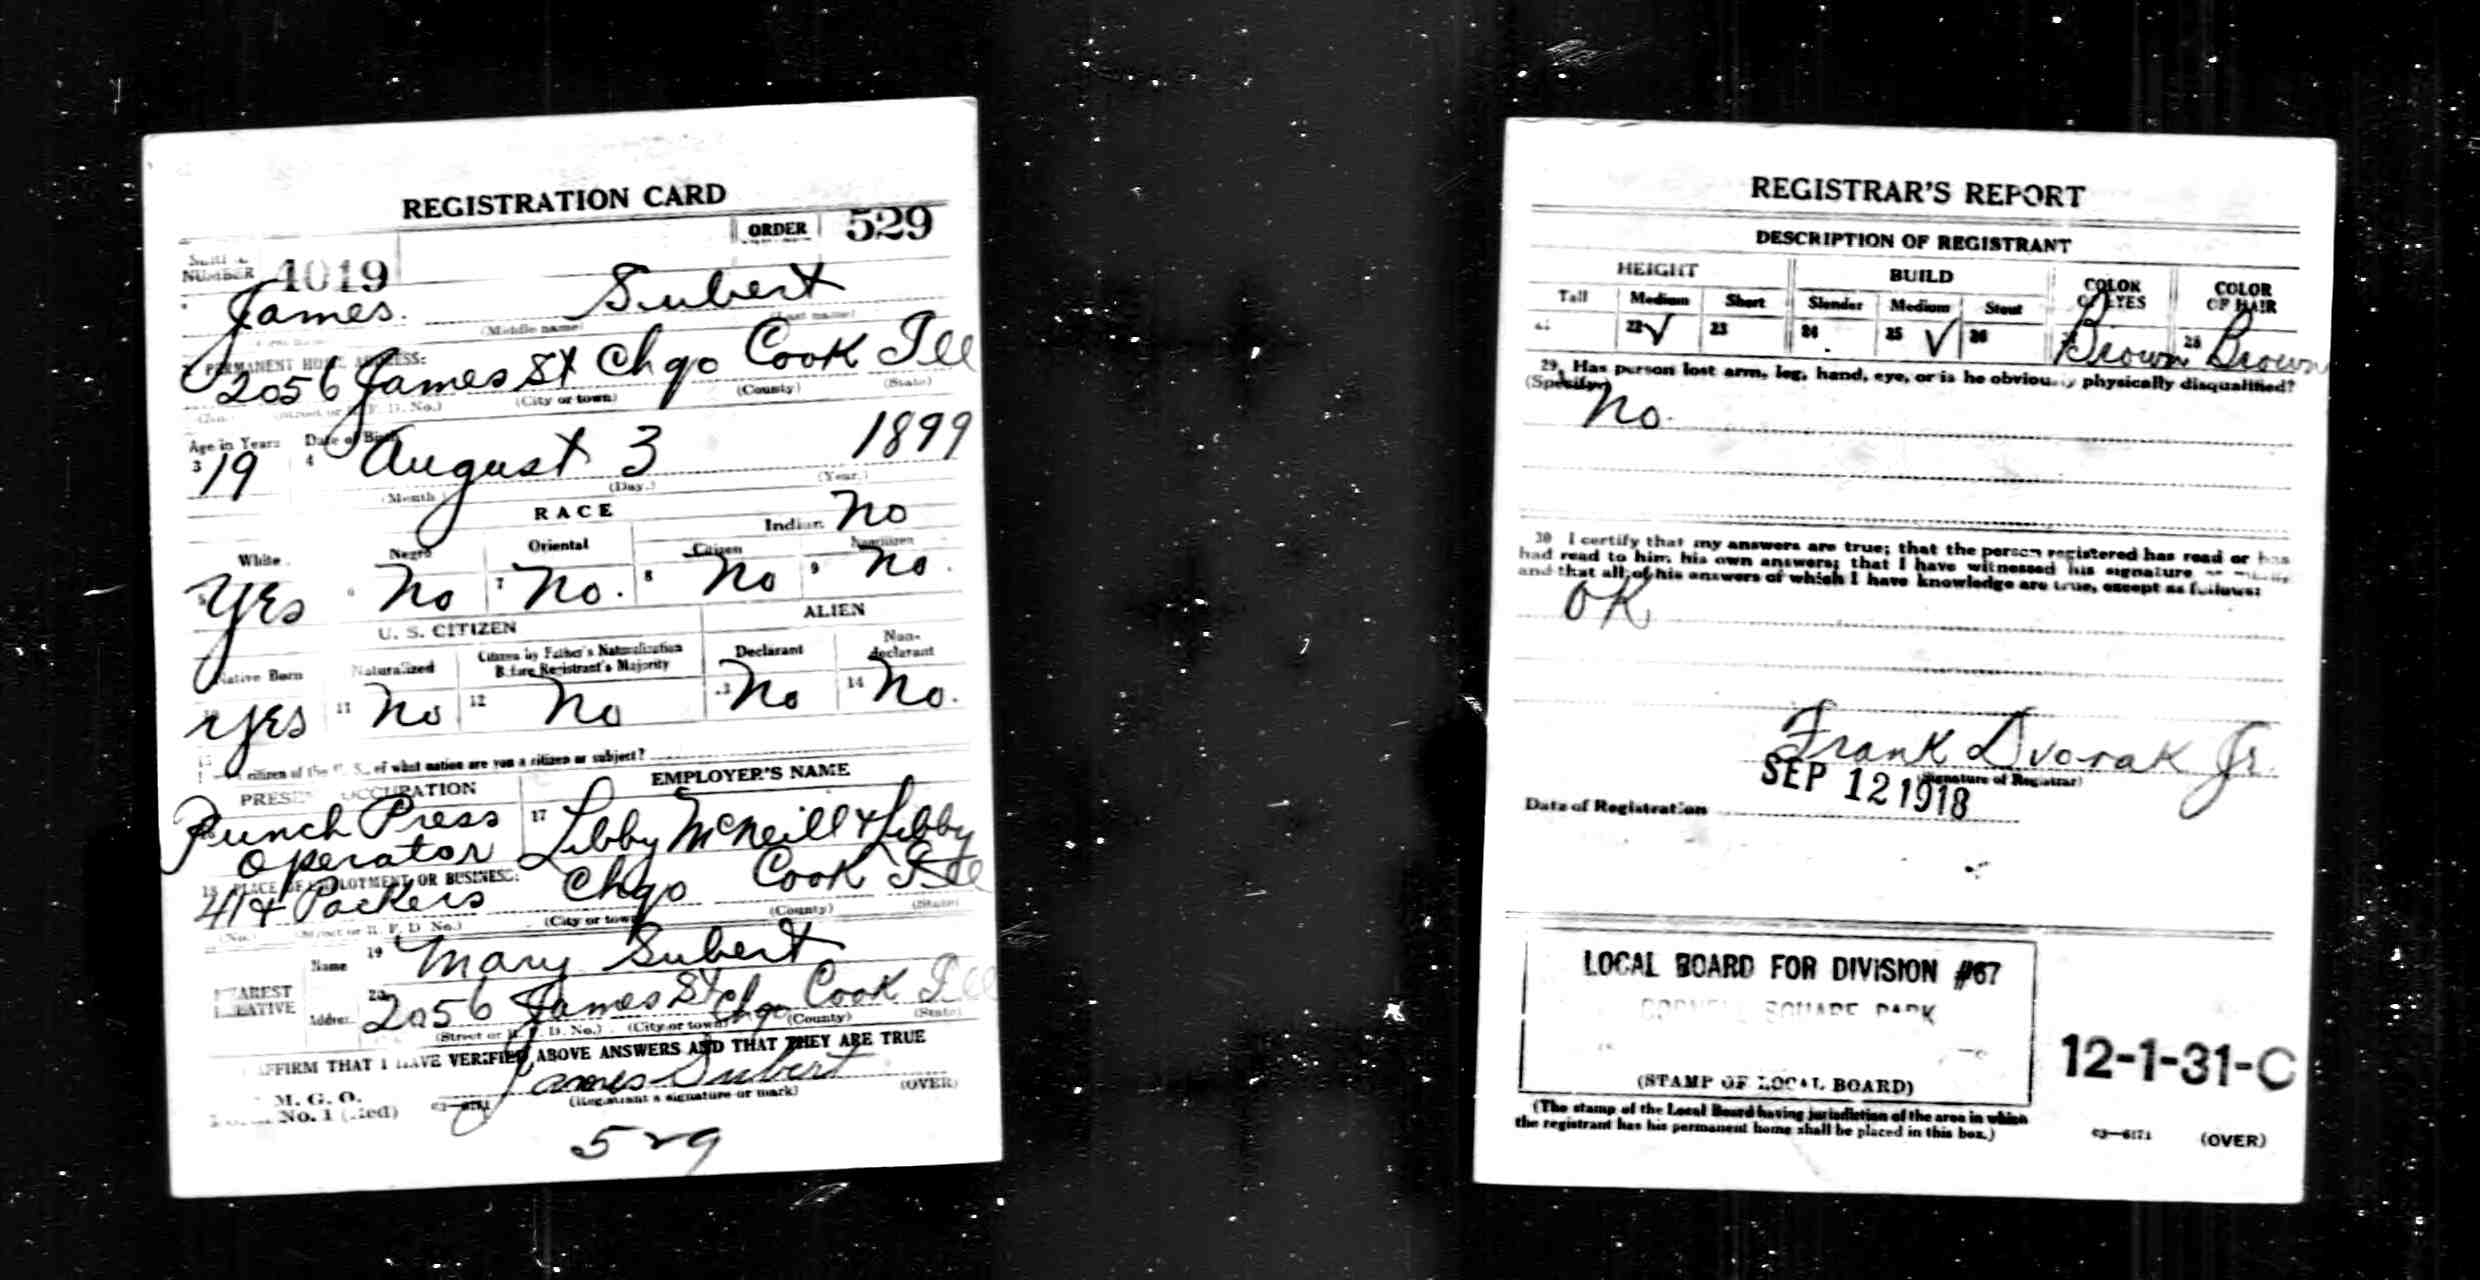 REGISTRATION CARD
NUMBER 4019 ORDER 529
James. Subert
(Middle name) (Last name)
PERMANENT HOME ADDRESS:
2056 James St Chgo Cook Ill
(City or town) (County) (State)
Age in Years Date of Birth
3 19 4 August 3 1899
(Month) (Day.) (Year.)
RACE
Indian No
White Negro Oriental Citizen Noncitizen
Yes No 7 No. 8 No 9 No.
U. S. CITIZEN ALIEN
Native Born Naturalized Citizen by Father's Naturalization Before Registrant's Majority Declarant Non-declarant
Yes 11 No 12 No No 14 No.
citizen of the U. S., of what nation are you a citizen or subject?
PRESENT OCCUPATION EMPLOYER'S NAME
Punch Press 17 Libby McNeill & Libby
Operator
18 PLACE OF EMPLOYMENT OR BUSINESS:
414 Packers Chgo Cook Ill
(No.) (Street or R. F. D. No.) (City or town) (County) (State)
Name 19 Mary Subert
NEAREST RELATIVE
Address 20 2056 James St Chgo Cook Ill
(Street or R. F. D. No.) (City or town) (County) (State)
AFFIRM THAT I HAVE VERIFIED ABOVE ANSWERS AND THAT THEY ARE TRUE
James Subert
(Registrant's signature or mark) (OVER)
P. M. G. O.
No. 1 (Red)
529
REGISTRAR'S REPORT
DESCRIPTION OF REGISTRANT
HEIGHT BUILD COLOR OF EYES COLOR OF HAIR
Tall Medium Short Slender Medium Stout
22 ✓ 23 24 25 ✓ 26 Brown 28 Brown
29. Has person lost arm, leg, hand, eye, or is he obviously physically disqualified?
(Specify.)
No.
30 I certify that my answers are true; that the person registered has read or has
had read to him his own answers; that I have witnessed his signature or mark,
and that all of his answers of which I have knowledge are true, except as follows:
OK
Frank Dvorak Jr.
(Signature of Registrar)
Date of Registration SEP 12 1918
LOCAL BOARD FOR DIVISION #67
CORNELL SQUARE PARK
(STAMP OF LOCAL BOARD)
12-1-31-C
(The stamp of the Local Board having jurisdiction of the area in which
the registrant has his permanent home shall be placed in this box.)
03—6171 (OVER)